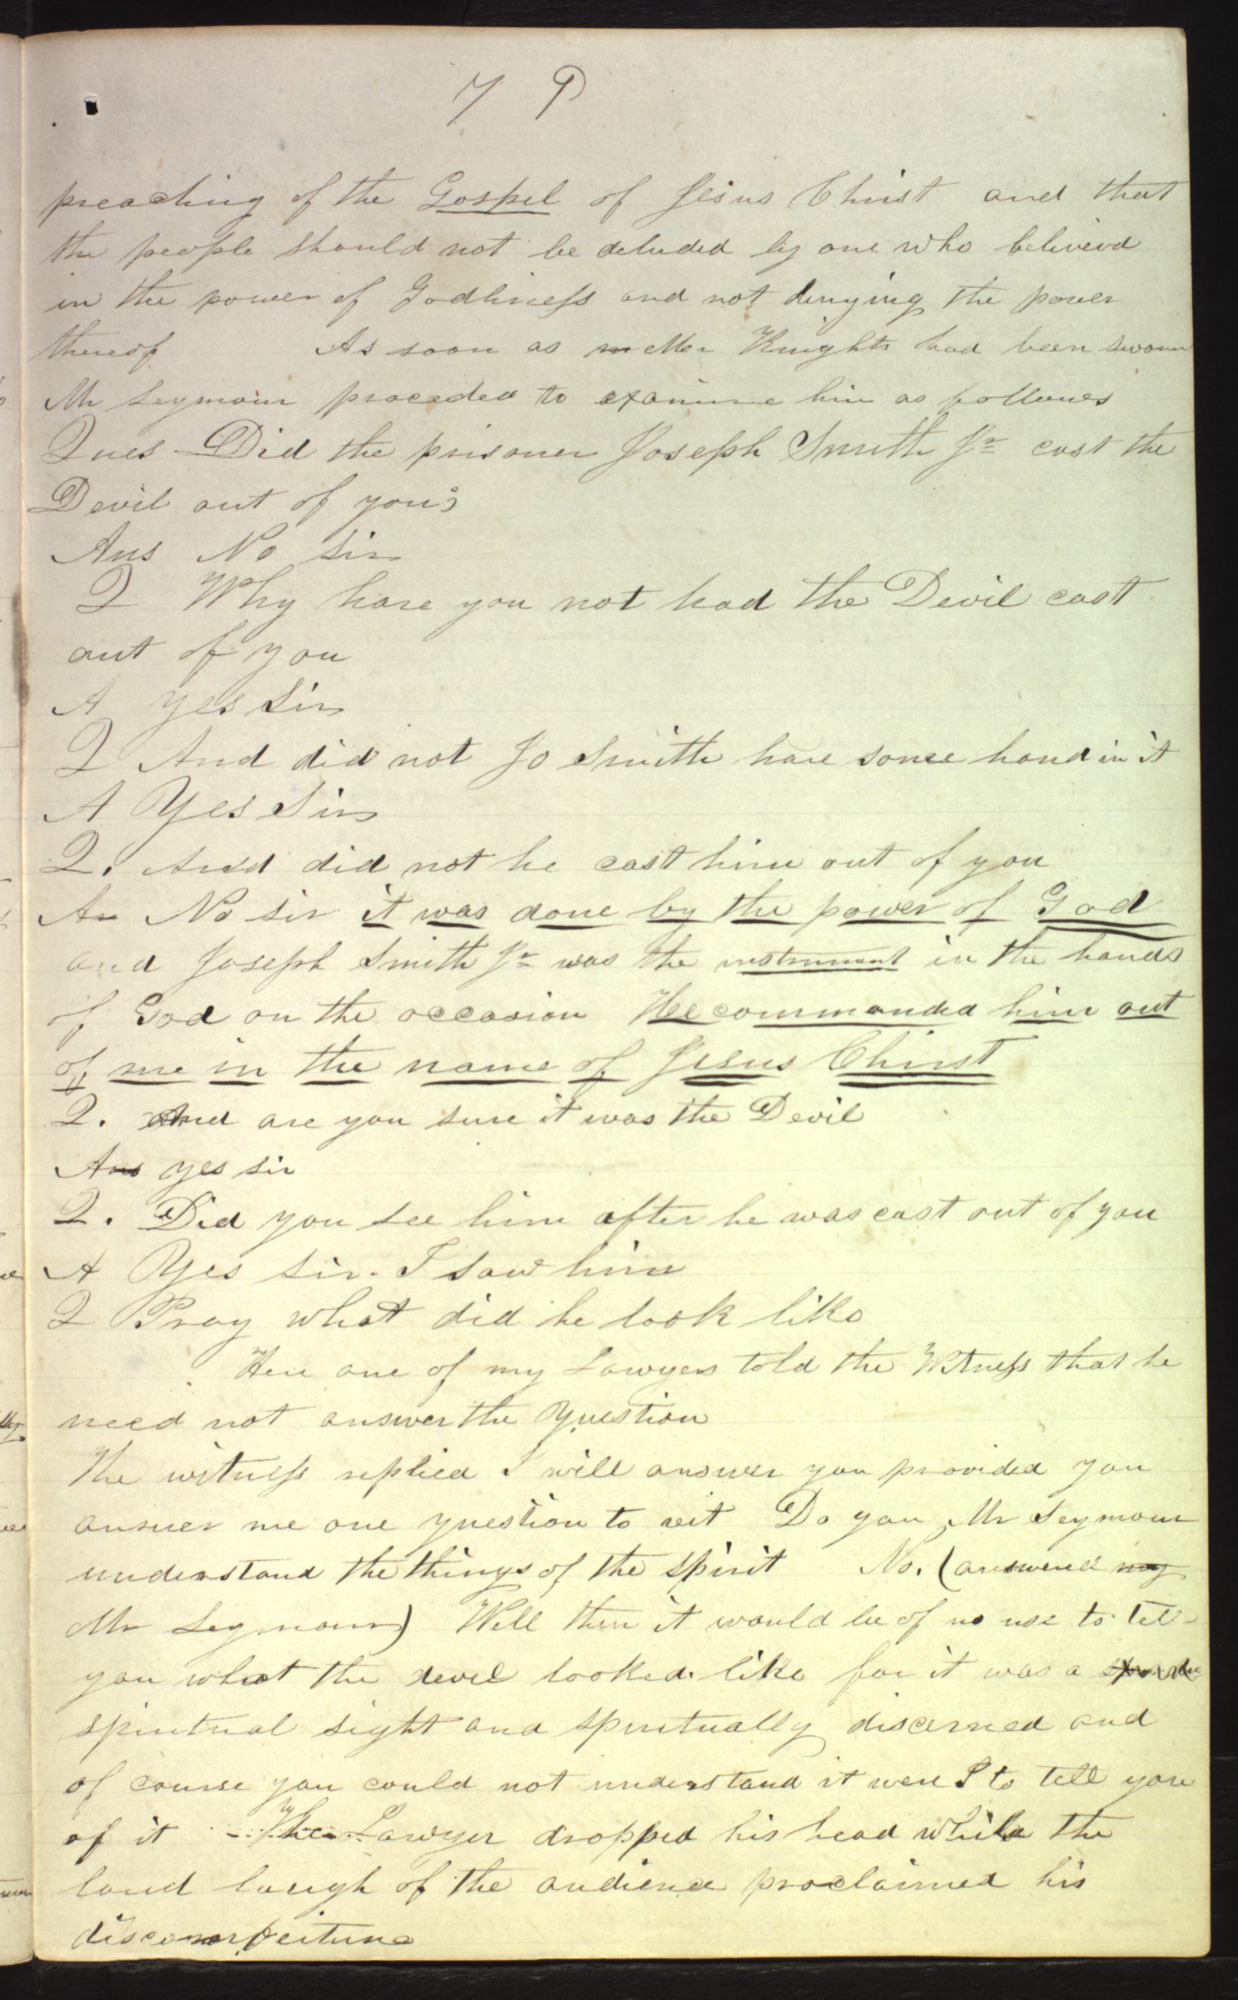 7 9
preaching of the Gospel of Jesus Christ and that
the people should not be deluded by one who believed
in the power of Godliness and not denying the power
thereof As soon as Mr Knights had been sworn
Mr Seymour proceded to examine him as follows
Ques Did the prisoner Joseph Smith Jr cast the
Devil out of you;
Ans No sir
Q Why have you not had the Devil cast
out of you
A yes Sir
Q And did not Jo Smith have some hand in it
A Yes Sir
Q. And did not he cast him out of you
A No sir it was done by the power of God
and Joseph Smith Jr was the instrument in the hands
of God on the occasion He commanded him out
of me in the name of Jesus Christ
Q. And are you sure it was the Devil
Ans yes sir
Q. Did you see him after he was cast out of you
A Yes sir. I saw him
Q Pray what did he look like
Here one of my Lawyers told the Witness that he
need not answer the Question
The witness replied I will answer you provided you
answer me one question to wit Do you Mr Seymour
understand the things of the spirit No. (answered my
Mr Seymour) Well then it would be of no use to tell
you what the devil looked like for it was a
spiritual sight and spiritually discerned and
of course you could not understand it were I to tell you
of it The Lawyer dropped his head while the
loud laugh of the audience proclaimed his
discomfeiture